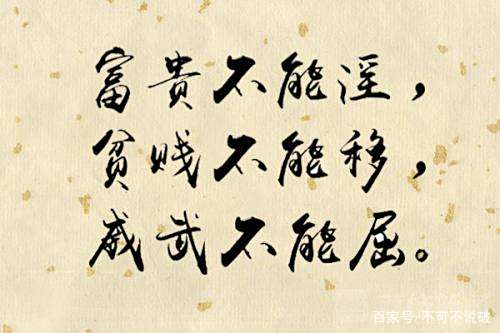 富贵不能淫，
贫贱不能移，
威武不能屈。
百家号/不可不说破